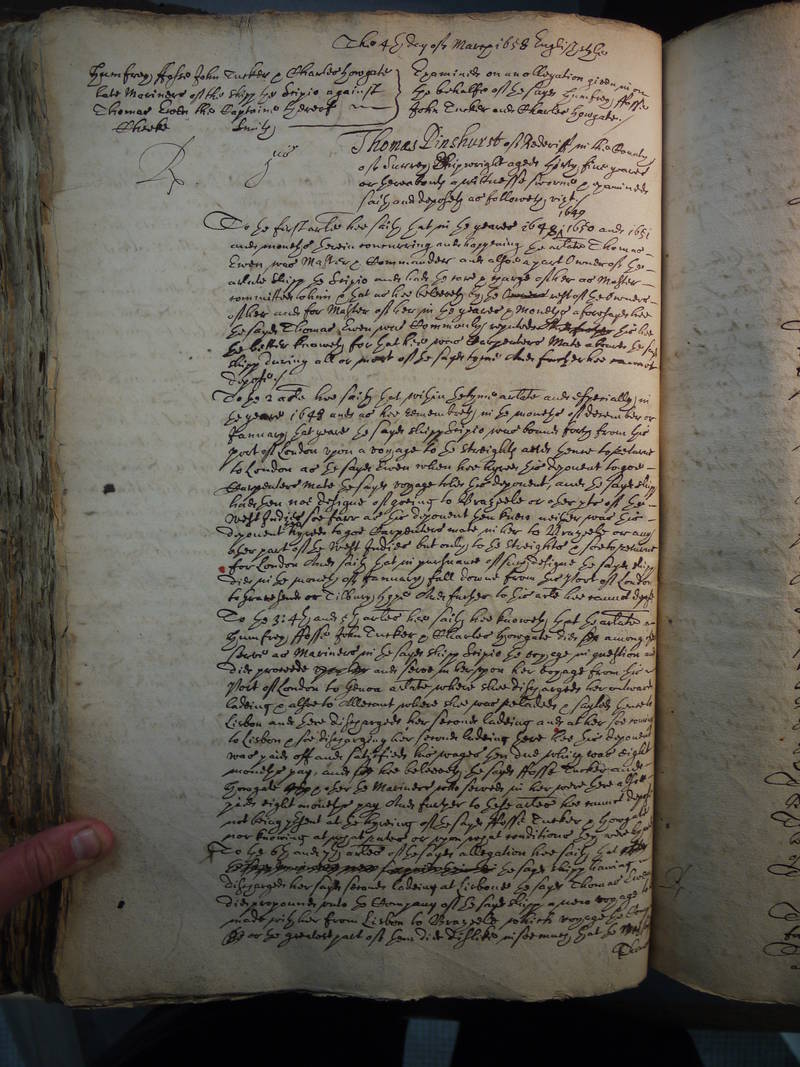 The 4th day of March 1658 English stile
Humfrey ffosse John Tucker & Charles Howgate
late Mariners of the shipp the Scipio against
Thomas Ewen the Captaine thereof
Cheeke Smith
Examined on an allegation given in on
the behalfe of the sayd Humfrey ffosse
John Tucker and Charles Howgate.
Thomas Pinshurst of Rederiff in the County
of Surrey Shipwright aged thirty five yeares
or thereabouts a witnesse sworne & examined
saith and deposeth as followeth, vizt
1649
To the first arlate hee saith that in the yeares 1648 1650 and 1651
and moneths therein concurring and happening the arlate Thomas
Ewen was Master & Commander and alsoe a part Owner of the
arlate shipp the Scipio and had the care & charge of her as Master
committed to him & that as hee beleeveth by the rest of the Owners
of her and for Master of her in the yeares & moneths aforesayd hee
the sayd Thomas Ewen was Commonly reputed this hee
the better knoweth for that hee was Carpenters Mate aboard the sayd
shipp during all or most of the sayd tyme And further hee cannot
depose./
To the 2 arle hee saith that within the tyme arlate and especially in
the yeare 1648 and as hee remembreth in the moneths of december or
January that yeare the sayd shipp Scipio was bound forth from this
port of London upon a voyage to the Streights and thence to returne
to London as the sayd Ewen when hee hyred this deponent to goe
Carpenters Mate the sayd voyage told this deponent, and the sayd shipp
had then noe designe of going to Brazeele or other pts of the
West Indies soe farr as this deponent then knew neither was this
deponent hyred to goe Carpenters mate in her to Brazeele or any
other part of the West Indies but only to the Streights & soe to returne
for London And saith that in pursuance of such designe the sayd shipp
did in the moneth of January fall downe from this Port of London
to Gravesend or Tilbury hope And further to this arle hee cannot depose
To the 3: 4th and 5th arles hee saith hee knoweth that the arlate
Humfrey ffosse John Tucker & Charles Howgate did among others
serve as Mariners in the sayd shipp Scipio the voyage in question and
did proceede and serve in her upon her voyage from this
Port of London to Genoa arlate where shee discharged her outward
ladeing & alsoe to Allicant where shee was reeladed & sayled thence to
Lisbon and there discharged her second ladeing and at her soe coming
to Lisbon & soe discharging her second ladeing there hee this deponent
was paid off and satisfied his wages then due which was eight
moneths pay, and hee beleeveth the sayd ffosse Tucker and
Howgate & other the Mariners who served in her were there alsoe
paid eight moneths pay And further to these arles hee cannot depose
not being present at the hyreing of the sayd ffosse Tucker & Howgate
nor knowing at what rates or upon what conditions they were hyred
To the 6th and 7th arles of the sayd allegation hee saith that
the sayd shipp having
discharged her sayd second ladeing at Lisbone the sayd Thomas Ewen
did propound unto the Company of the sayd shipp a new voyage to be
made with her from Lisbon to Brazeele which voyage the Company
or the greatest part of them did dislike insoemuch that the